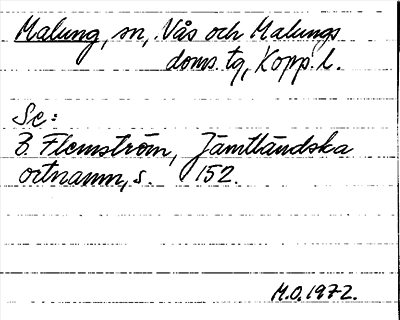 Malung, sn, Vås och Malungs
doms. tg, Kopp. l.
Se:
B. Flemström, Jämtländska
ortnamn, s. 152.
M.O. 1972.